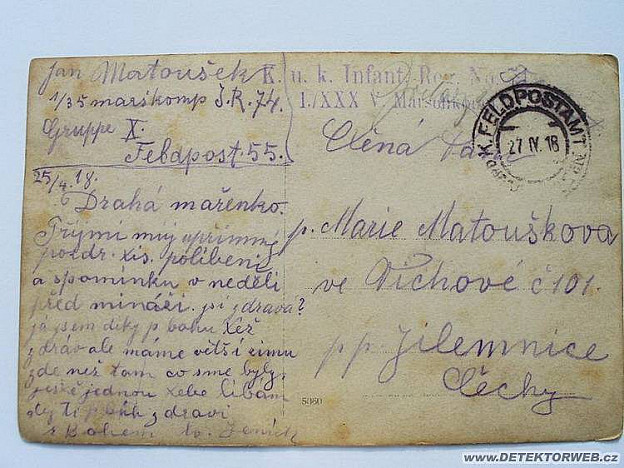 Jan Matoušek
1/35 marškomp J.R. 74.
Gruppe X.
Feldpost. 55.
K. u. k. Infant. Reg. No.
I./XXX V. Marschkomp
K.u.K. FELDPOSTAMT
27 IV. 18
25/4. 18.
Drahá mařenko.
Přijmi můj upřimný
pozdr. políbení
a spominku v neděli
před . jsi zdrava?
já jsem díky p bohu též
zdráv ale máme větší zimu
zde než tam co sme byly,
ještě jednou tebe líbám
dej ti p Bůh zdraví
s Bohem. tv. Jeník
Ctěná Paní
p. Marie Matouškova
ve Víchové č 101.
pp. Jilemnice
Čechy
5060
WWW.DETEKTORWEB.CZ